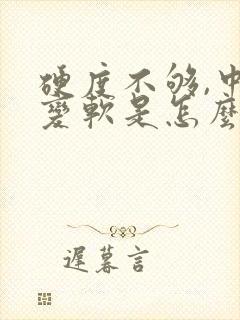 硬度不够,中
变软是怎么
遲暮言